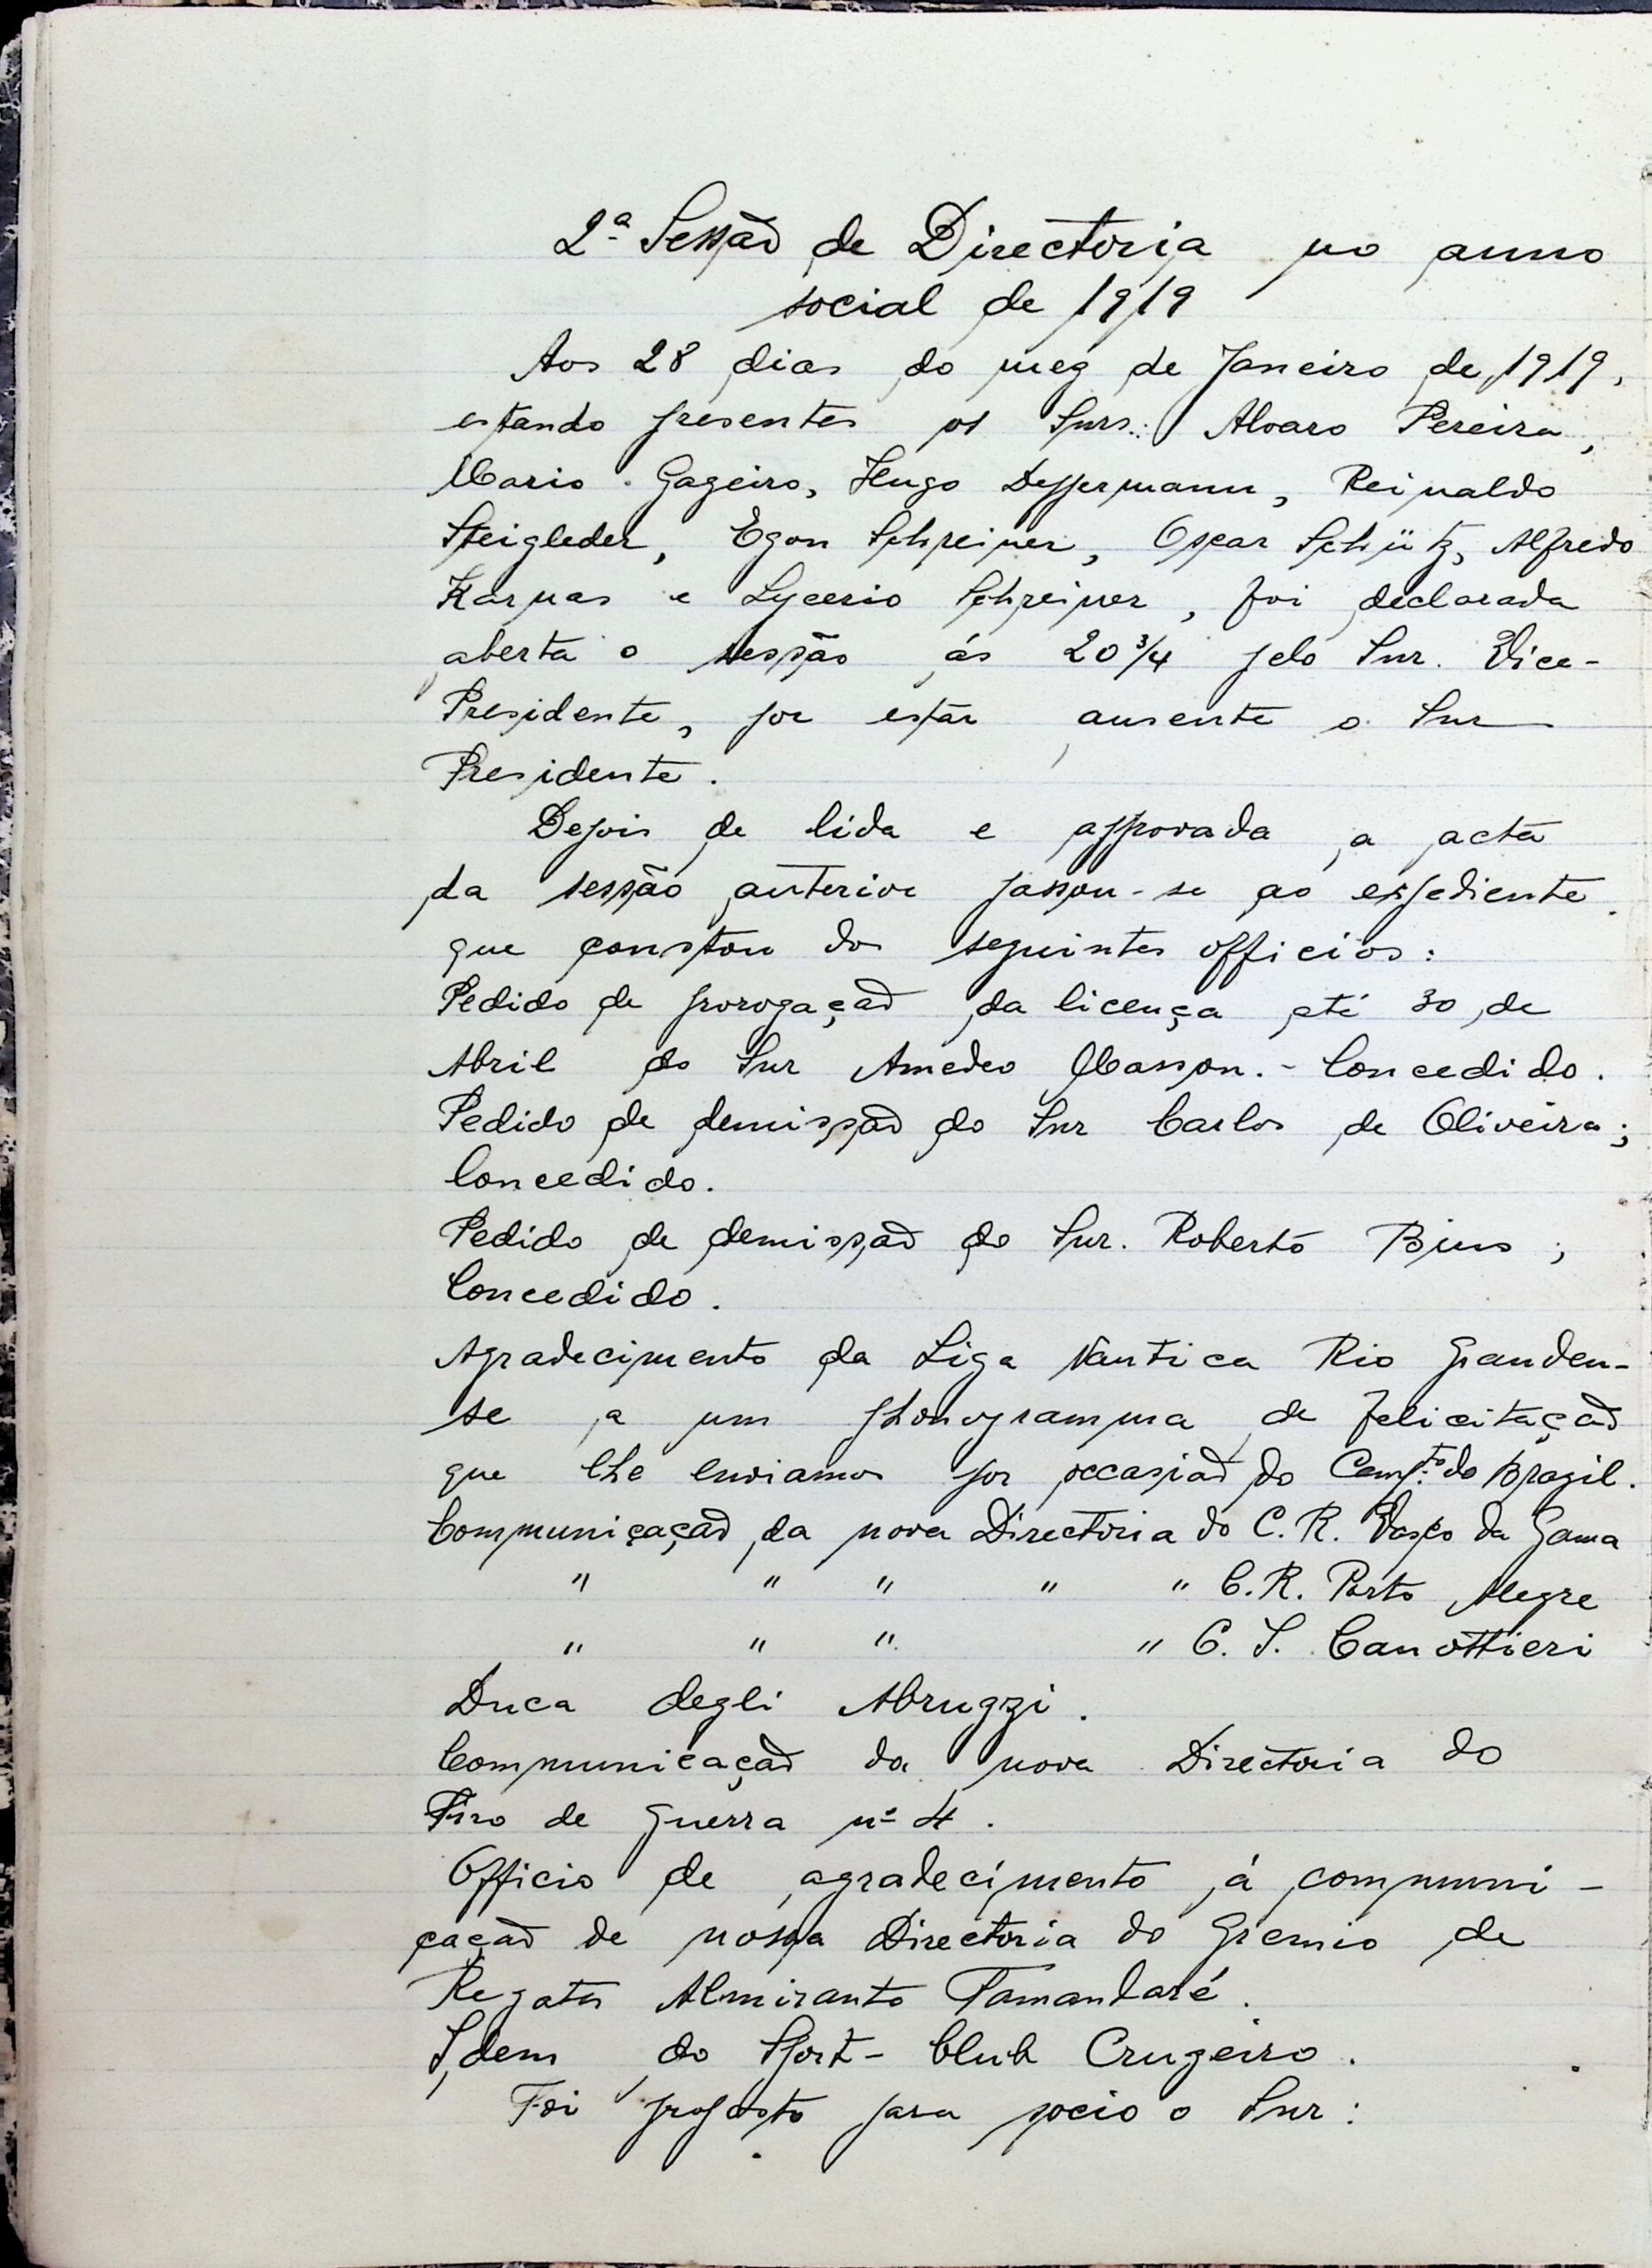 2ª Sessão de Directoria no anno
social de 1919
Aos 28 dias do mez de Janeiro de 1919,
estando presentes os Snrs.: Alvaro Pereira,
Mario Gazeiro, Hugo Deppermann, Reinaldo
Steigleder, Egon Schreiner, Oscar Schütz, Alfredo
Karnas e Lycerio Schreiner, foi declarada
aberta a sessão ás 20 3/4 pelo Snr. Vice-
Presidente, por estar ausente o Snr
Presidente.
Depois de lida e approvada a acta
da sessão anterior passou-se ao expediente
que constou dos seguintes officios:
Pedido de prorogação da licença até 30 de
Abril do Snr Amedeo Masson. - Concedido.
Pedido de demissão do Snr Carlos de Oliveira;
Concedido.
Pedido de demissão do Snr. Roberto Bins;
Concedido.
Agradecimento da Liga Nautica Rio Granden-
se a um phonogramma de felicitação
que lhe enviamos por occasião do Campto. do Brazil.
Communicação da nova Directoria do C. R. Vasco da Gama
" " " " " C. R. Porto Alegre
" " " " C. I. Canottieri
Duca degli Abruzzi.
Communicação da nova Directoria do
Tiro de Guerra nº 4.
Officio de agradecimento á communi-
cação de nossa Directoria do Gremio de
Regatas Almirante Tamandaré.
Idem do Sport-Club Cruzeiro.
Foi proposto para socio o Snr: